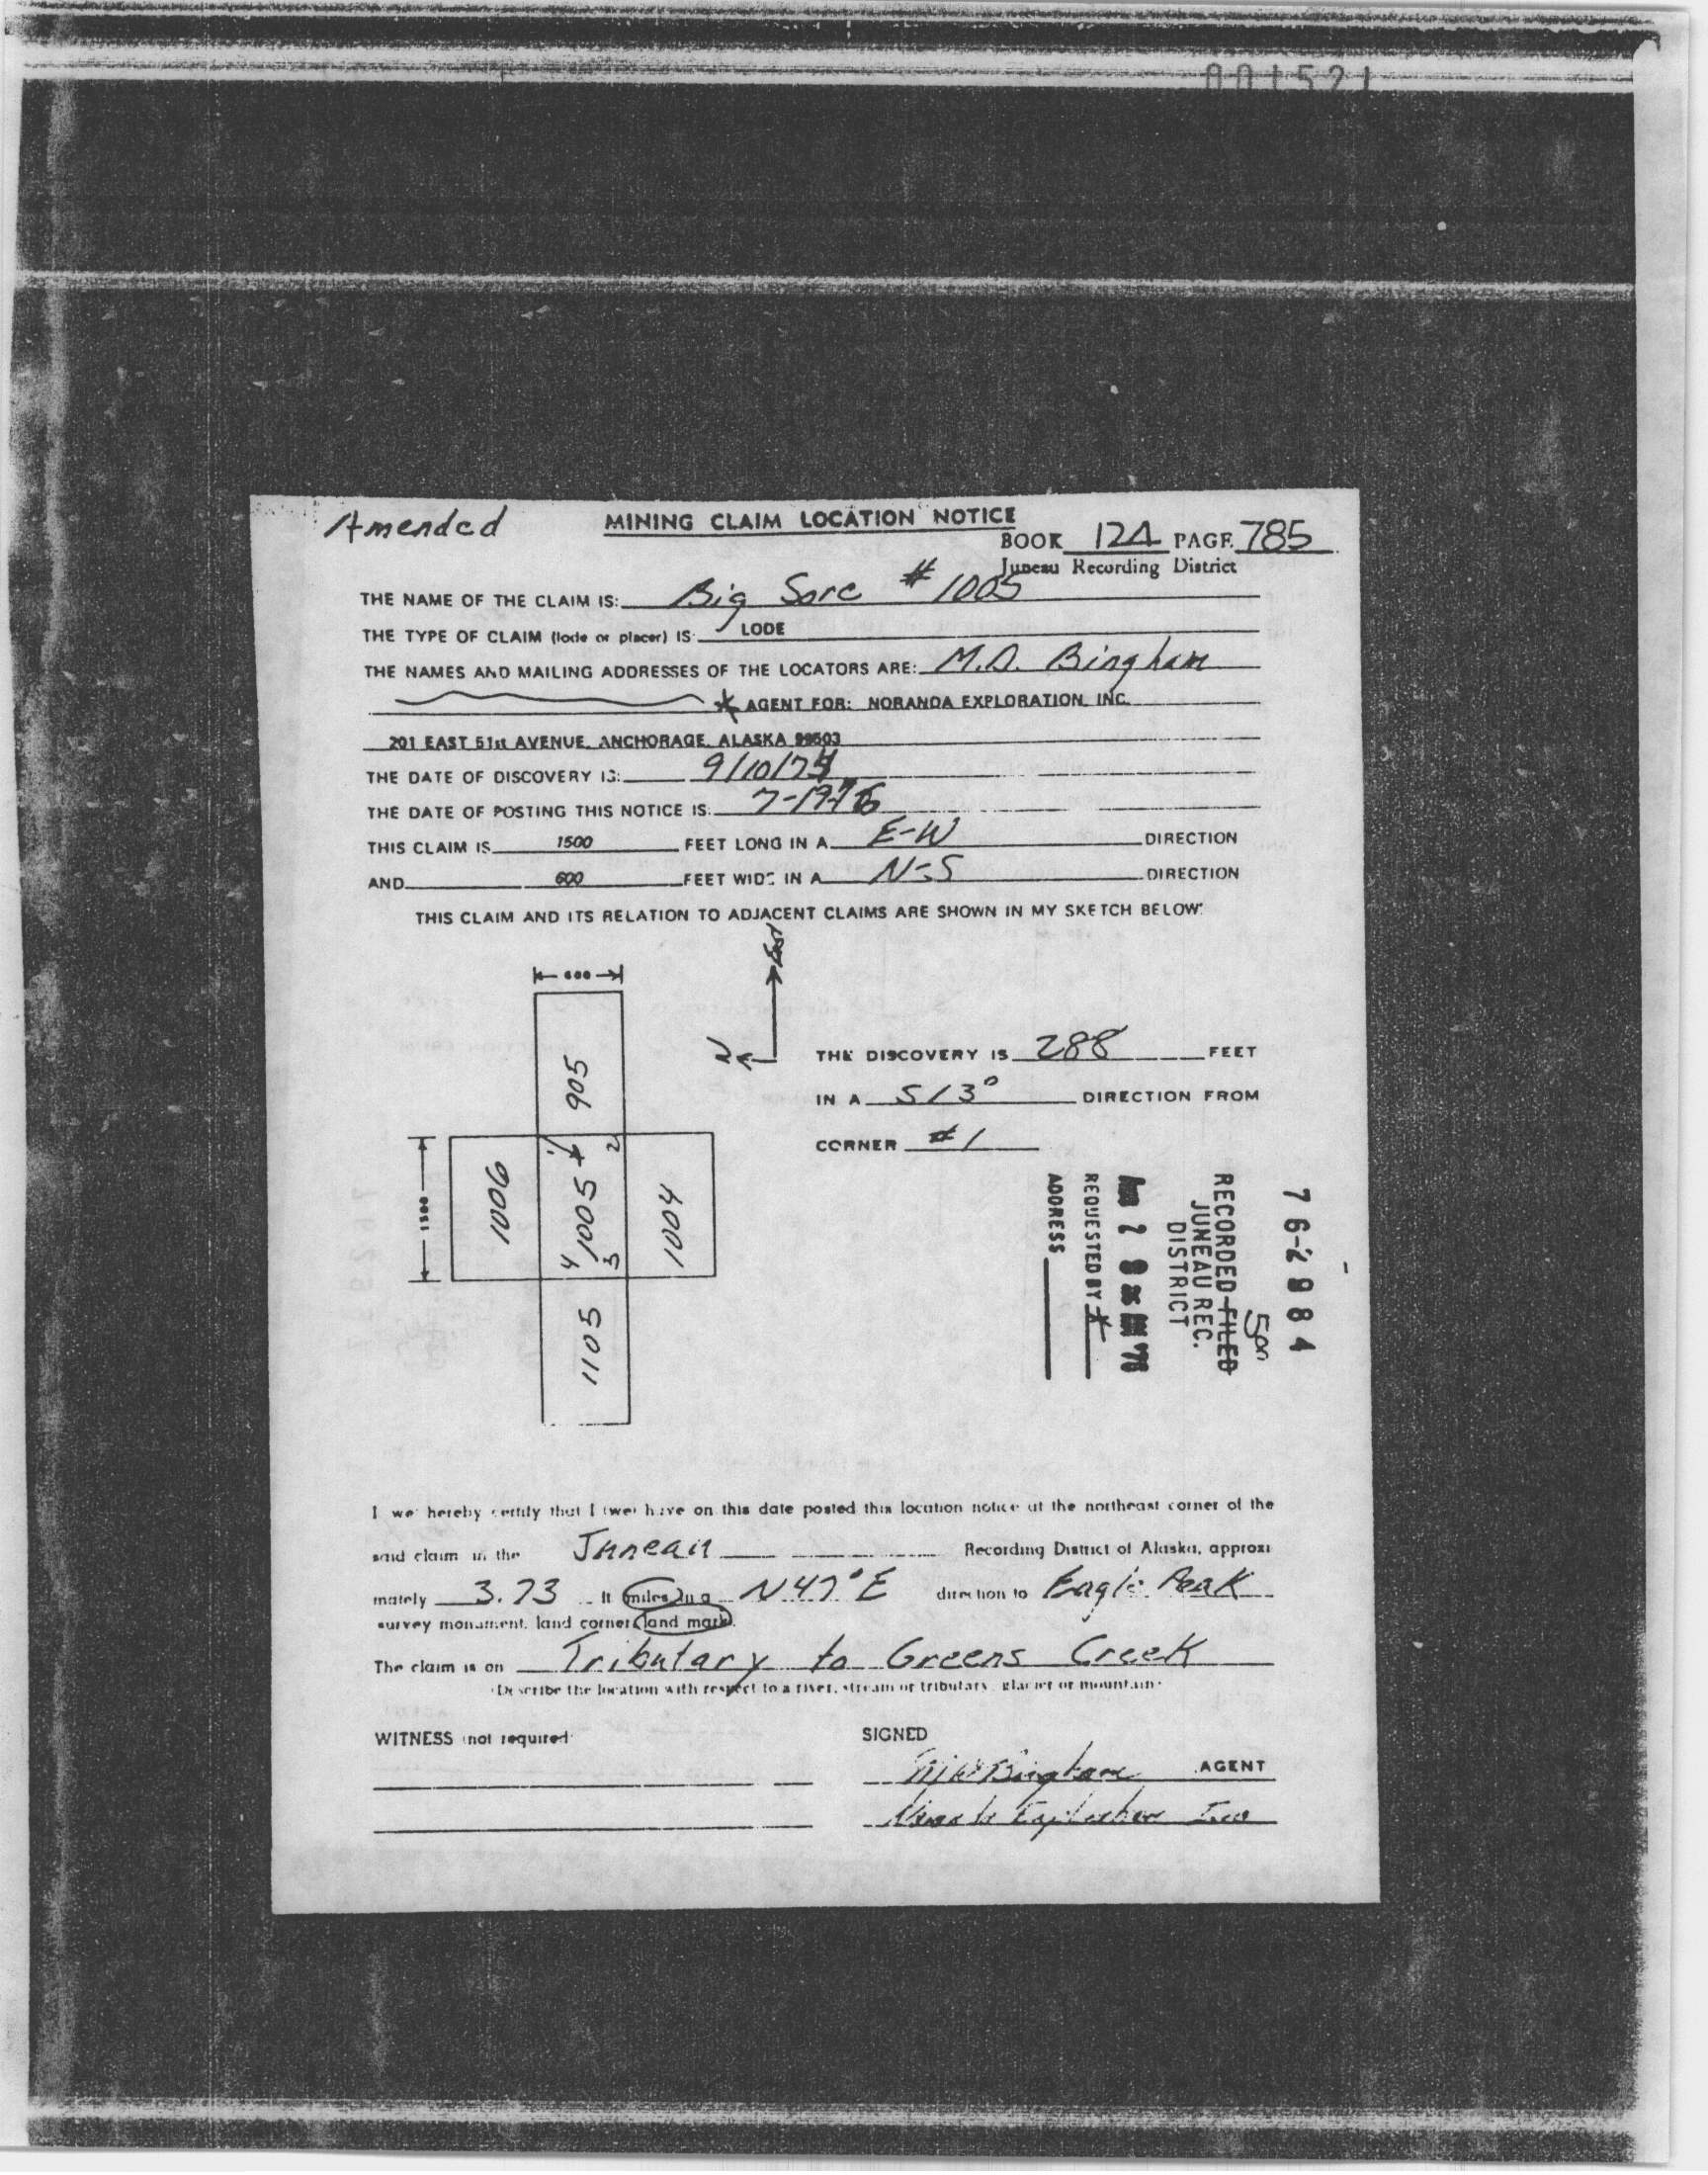 001521
Amended
MINING CLAIM LOCATION NOTICE
BOOK 124 PAGE 785
Juneau Recording District
THE NAME OF THE CLAIM IS: Big Sore # 1005
THE TYPE OF CLAIM (lode or placer) IS: LODE
THE NAMES AND MAILING ADDRESSES OF THE LOCATORS ARE: M.D. Bingham
* AGENT FOR: NORANDA EXPLORATION, INC.
201 EAST 51st AVENUE, ANCHORAGE, ALASKA 99503
THE DATE OF DISCOVERY IS: 9/10/74
THE DATE OF POSTING THIS NOTICE IS: 7-19-76
THIS CLAIM IS 1500 FEET LONG IN A E-W DIRECTION
AND 600 FEET WIDE IN A N-S DIRECTION
THIS CLAIM AND ITS RELATION TO ADJACENT CLAIMS ARE SHOWN IN MY SKETCH BELOW:
600
N
905
THE DISCOVERY IS 288 FEET
IN A S13° DIRECTION FROM
CORNER #1
1500
1006
1 2
1005
4 3
1004
1105
76-2984
500
RECORDED FILED
JUNEAU REC.
DISTRICT
REQUESTED BY *
ADDRESS
I we hereby certify that I (we) have on this date posted this location notice at the northeast corner of the
said claim in the Juneau Recording District of Alaska, approxi
mately 3.73 ft miles in a N47°E direction to Eagle Peak
survey monument, land corner, land mark.
The claim is on Tributary to Greens Creek
(Describe the location with respect to a river, stream or tributary, glacier or mountain)
WITNESS (not required)
SIGNED
Mike Bingham AGENT
Noranda Exploration Inc